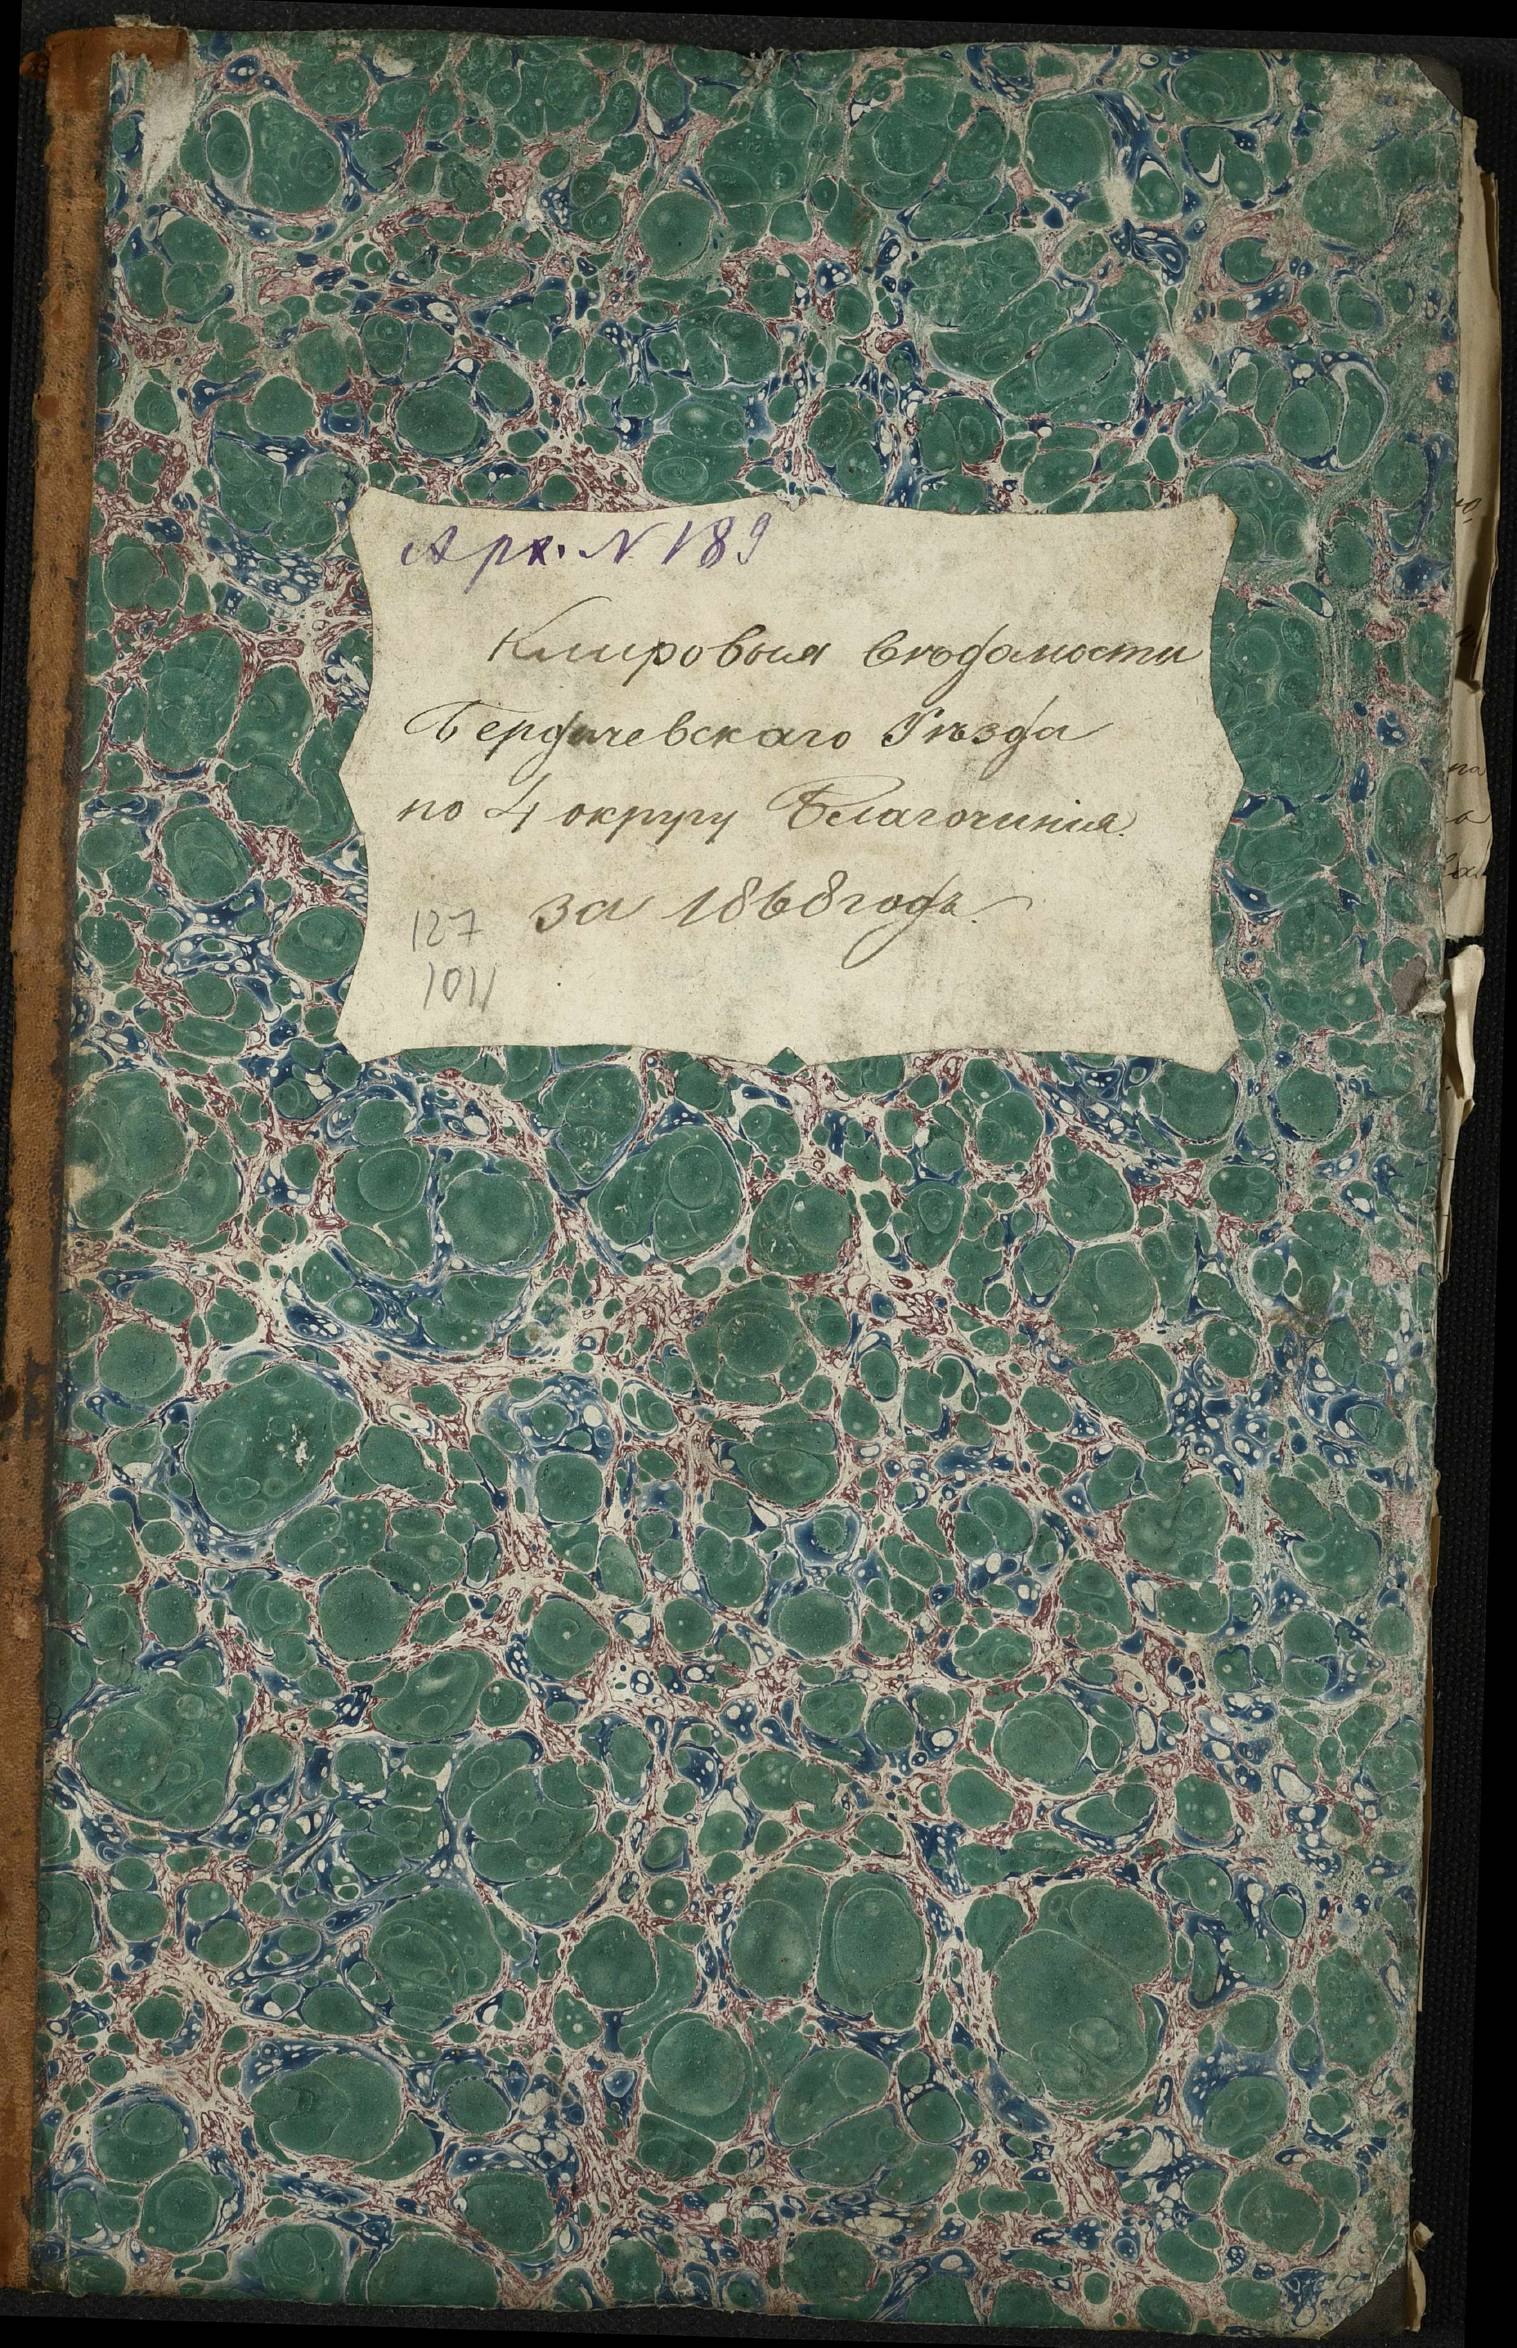 Арх. N 189
Клировыя вѣдомости
Бердичевскаго Уѣзда
по 4 округу Благочинія.
за 1868 годъ.
127
1011